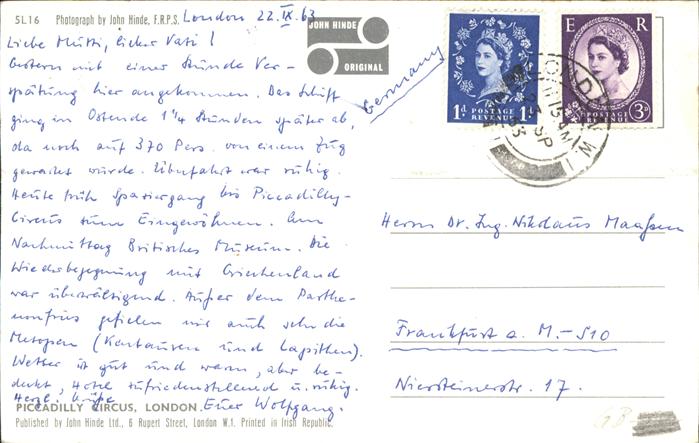 5L16 Photograph by John Hinde, F.R.P.S.
London 22.IX.63
JOHN HINDE
ORIGINAL
Germany
1D POSTAGE REVENUE 1D
E R
POSTAGE REVENUE 3D
Liebe Mutti, lieber Vati!
Gestern mit einer Stunde Ver-
spätung hier angekommen. Das Schiff
ging in Ostende 1 1/4 Stunden später ab,
da noch auf 370 Pers. von einem Zug
gewartet wurde. Überfahrt war ruhig.
Heute früh Spaziergang bis Piccadilly-
Circus zum Eingewöhnen. Am
Nachmittag Britisches Museum. Die
Wiederbegegnung mit Griechenland
war überwältigend. Außer dem Parthe-
nonfries gefielen mir auch sehr die
Metopen (Kentauren und Lapithen).
Wetter ist gut und warm, aber be-
deckt, Hotel zufriedenstellend u. ruhig.
Herzl. Grüße
Euer Wolfgang.
PICCADILLY CIRCUS, LONDON.
Published by John Hinde Ltd., 6 Rupert Street, London W.1. Printed in Irish Republic.
Herrn Dr. Ing. Nikolaus Maaßen
Frankfurt a. M.-S10
Niersteinerstr. 17.
GB